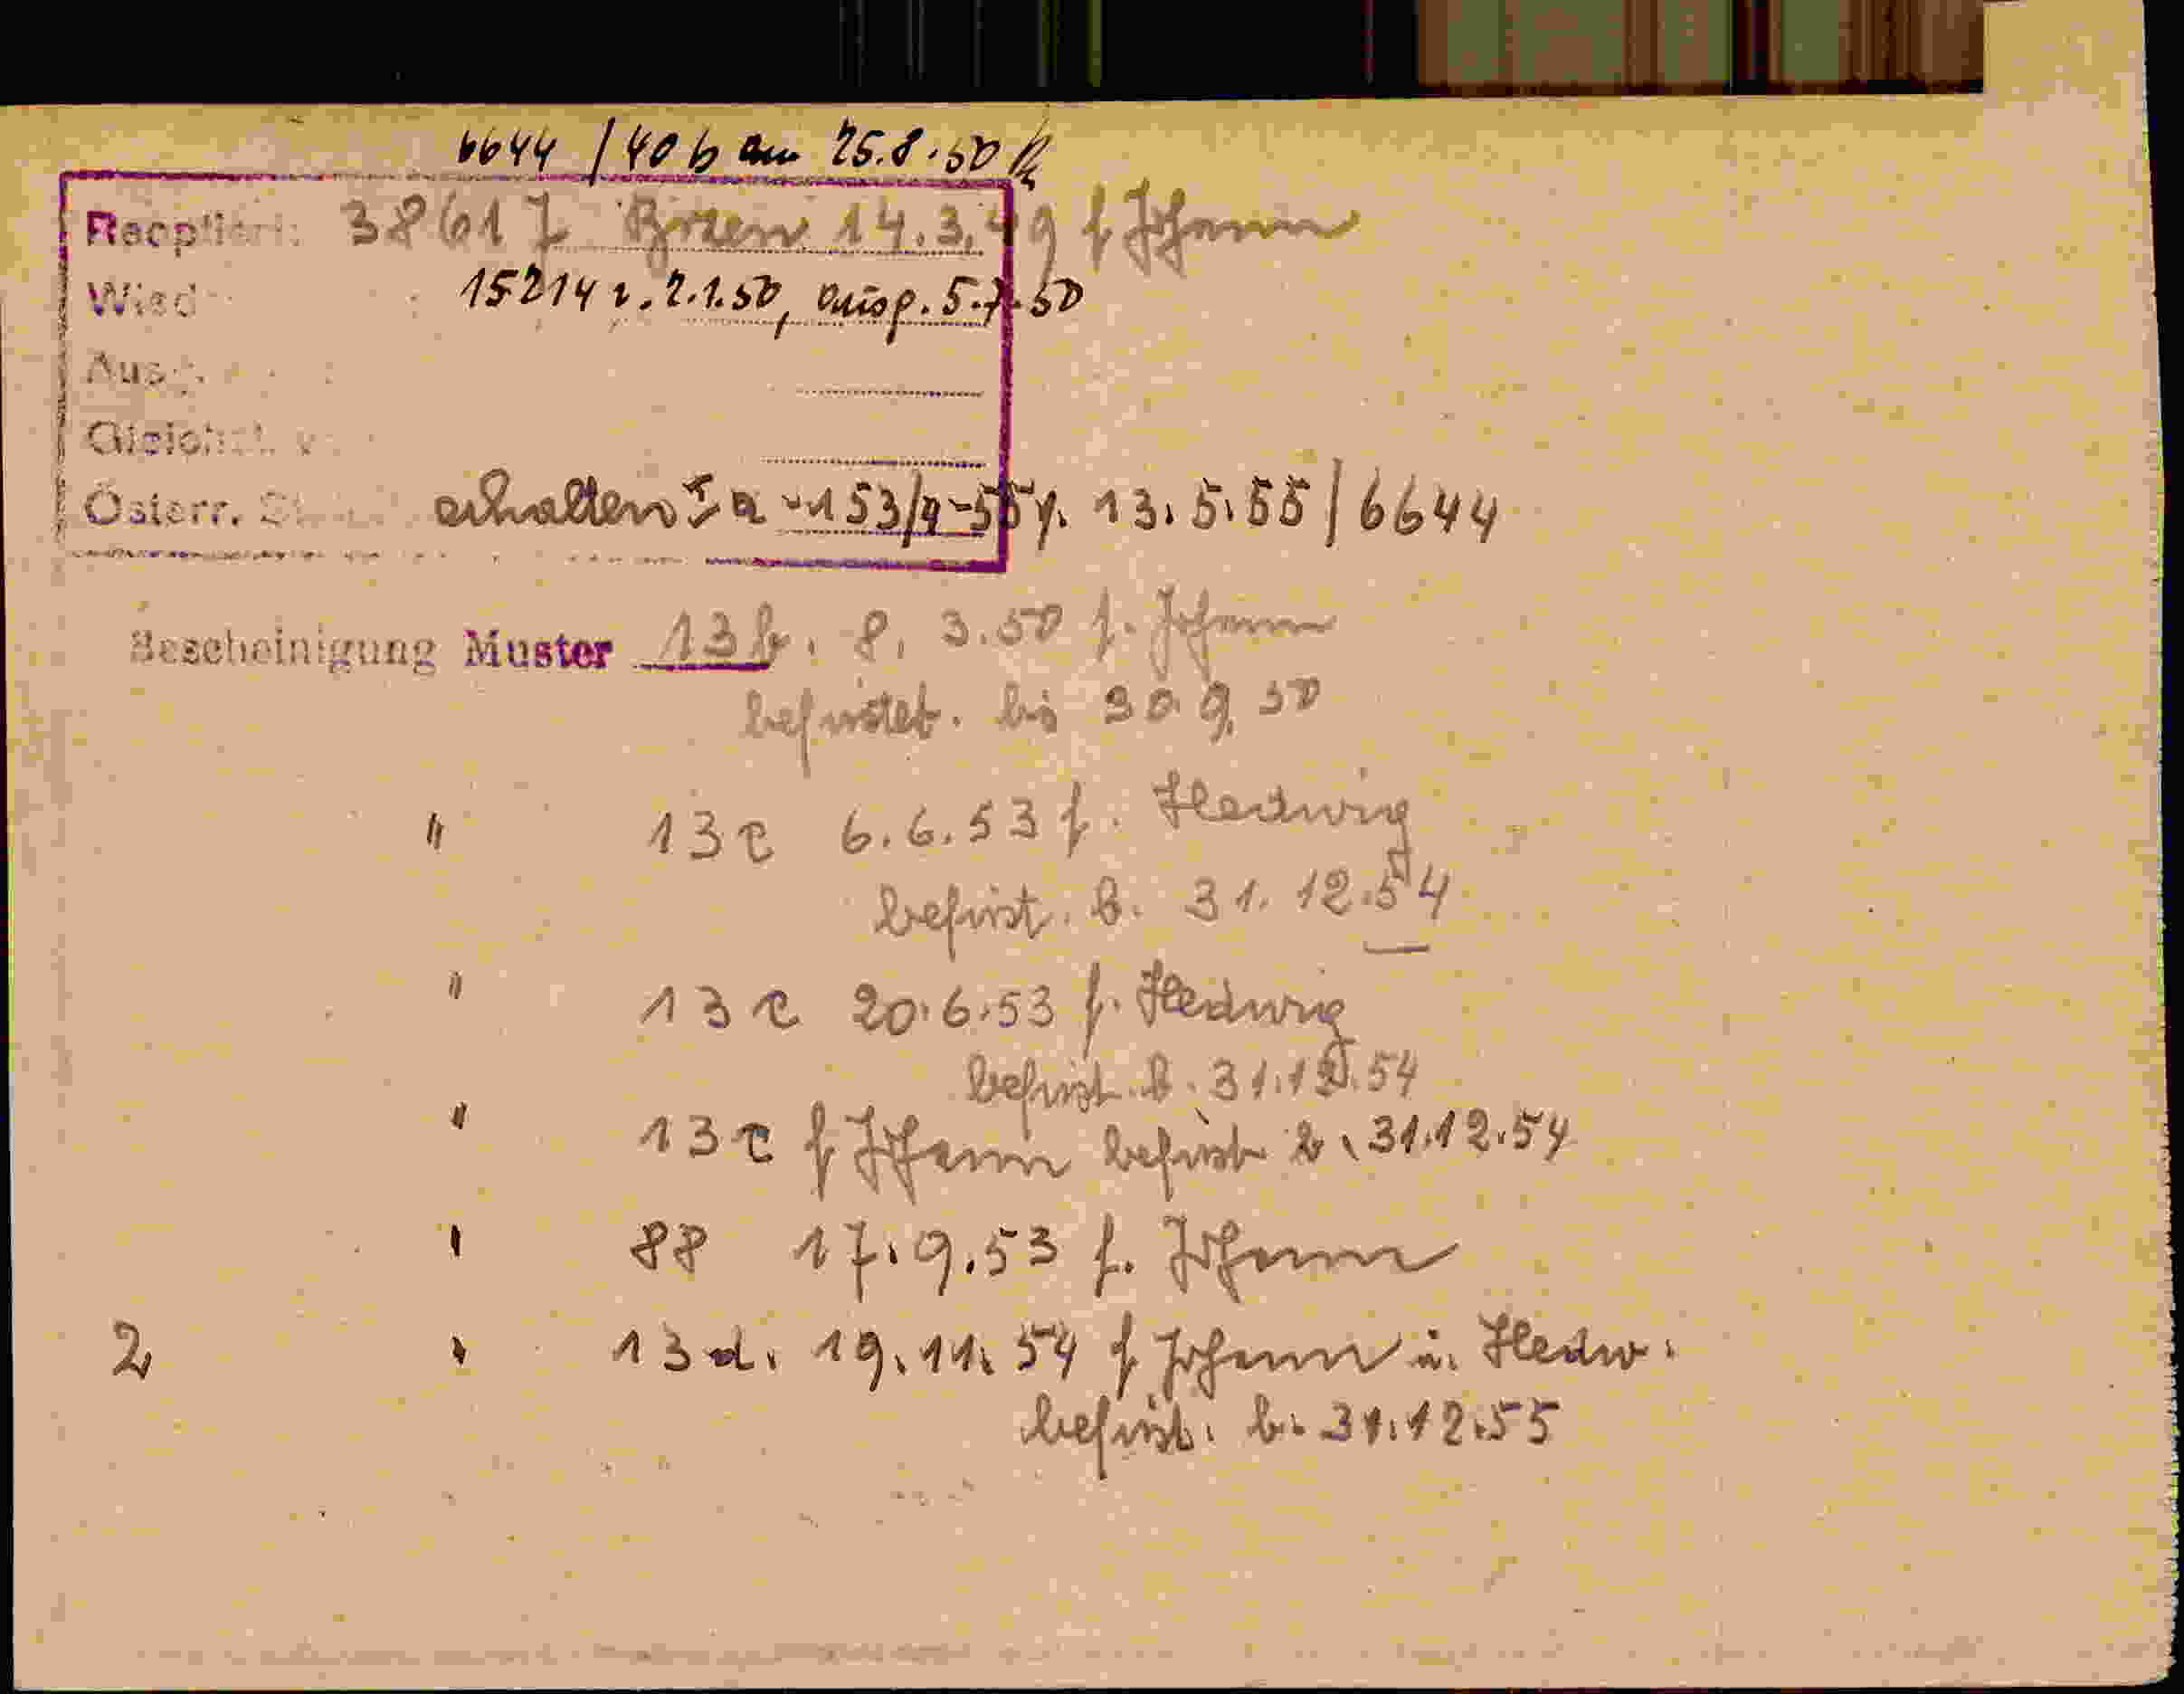 6644 / 40 b am 25.8.50
Reoptiert: 38617 Bozen 14.3.49 f Johann
Wied 15214 v. 2.1.50, ausg. 5.7.50
Ausg.
Gleichst. v
Österr. St erhalten I a - 153/4-55 v. 13.5.55 / 6644
Bescheinigung Muster 13 b. 8. 3.50 f. Johann
befristet. bis 30.9.50
" 13 c 6.6.53 f. Hedwig
befrist. b. 31.12.54
" 13 c 20.6.53 f. Hedwig
befrist. b. 31.12.54
" 13 c f Johann befrist b. 31.12.54
" 88 17.9.53 f. Johann
2 " 13 d. 19.11.54 f Johann u. Hedw.
befrist. b. 31.12.55